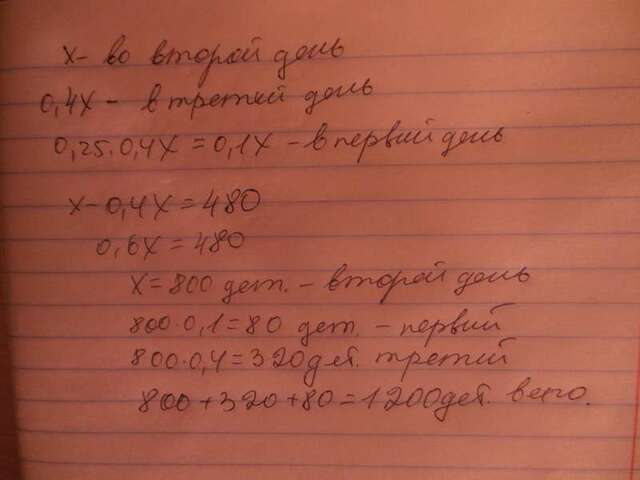 х- во второй день
0,4х - в третий день
0,25·0,4х = 0,1х - в первий день
х - 0,4х = 480
0,6х = 480
х = 800 дет. - второй день
800·0,1 = 80 дет. - первий
800·0,4 = 320 дет. третий
800 + 320 + 80 = 1200 дет. всего.